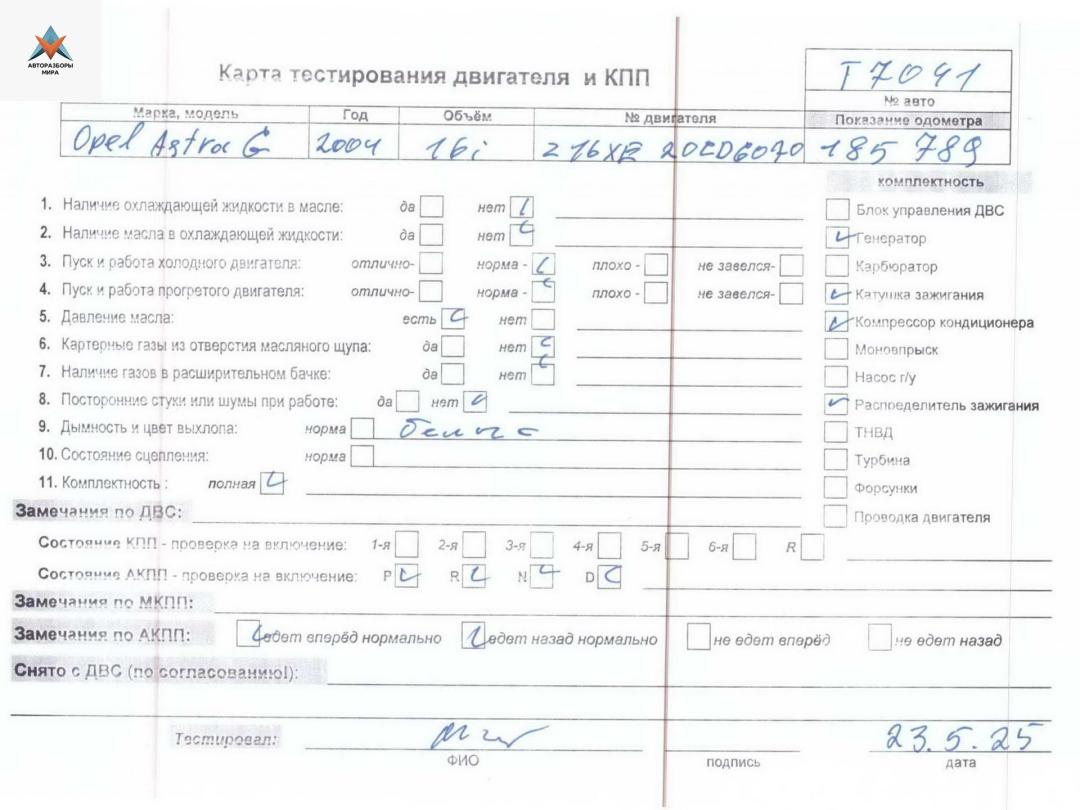 АВТОРАЗБОРЫ
МИРА
Карта тестирования двигателя и КПП
T7041
№ авто
Марка, модель Год Объём № двигателя Показание одометра
Opel Astra G 2004 16i Z16XE 20CD6070 185 789
комплектность
1. Наличие охлаждающей жидкости в масле: да нет
Блок управления ДВС
2. Наличие масла в охлаждающей жидкости: да нет
Генератор
3. Пуск и работа холодного двигателя: отлично- норма - плохо - не завелся-
Карбюратор
4. Пуск и работа прогретого двигателя: отлично- норма - плохо - не завелся-
Катушка зажигания
5. Давление масла: есть нет
Компрессор кондиционера
6. Картерные газы из отверстия масляного щупа: да нет
Моновпрыск
7. Наличие газов в расширительном бачке: да нет
Насос г/у
8. Посторонние стуки или шумы при работе: да нет
Распределитель зажигания
9. Дымность и цвет выхлопа: норма
ТНВД
10. Состояние сцепления: норма
Турбина
11. Комплектность : полная
Форсунки
Замечания по ДВС:
Проводка двигателя
Состояние КПП - проверка на включение: 1-я 2-я 3-я 4-я 5-я 6-я R
Состояние АКПП - проверка на включение: P R N D
Замечания по МКПП:
Замечания по АКПП: едет вперёд нормально едет назад нормально не едет вперёд не едет назад
Снято с ДВС (по согласованию!):
Тестировал: 23.5.25
ФИО подпись дата